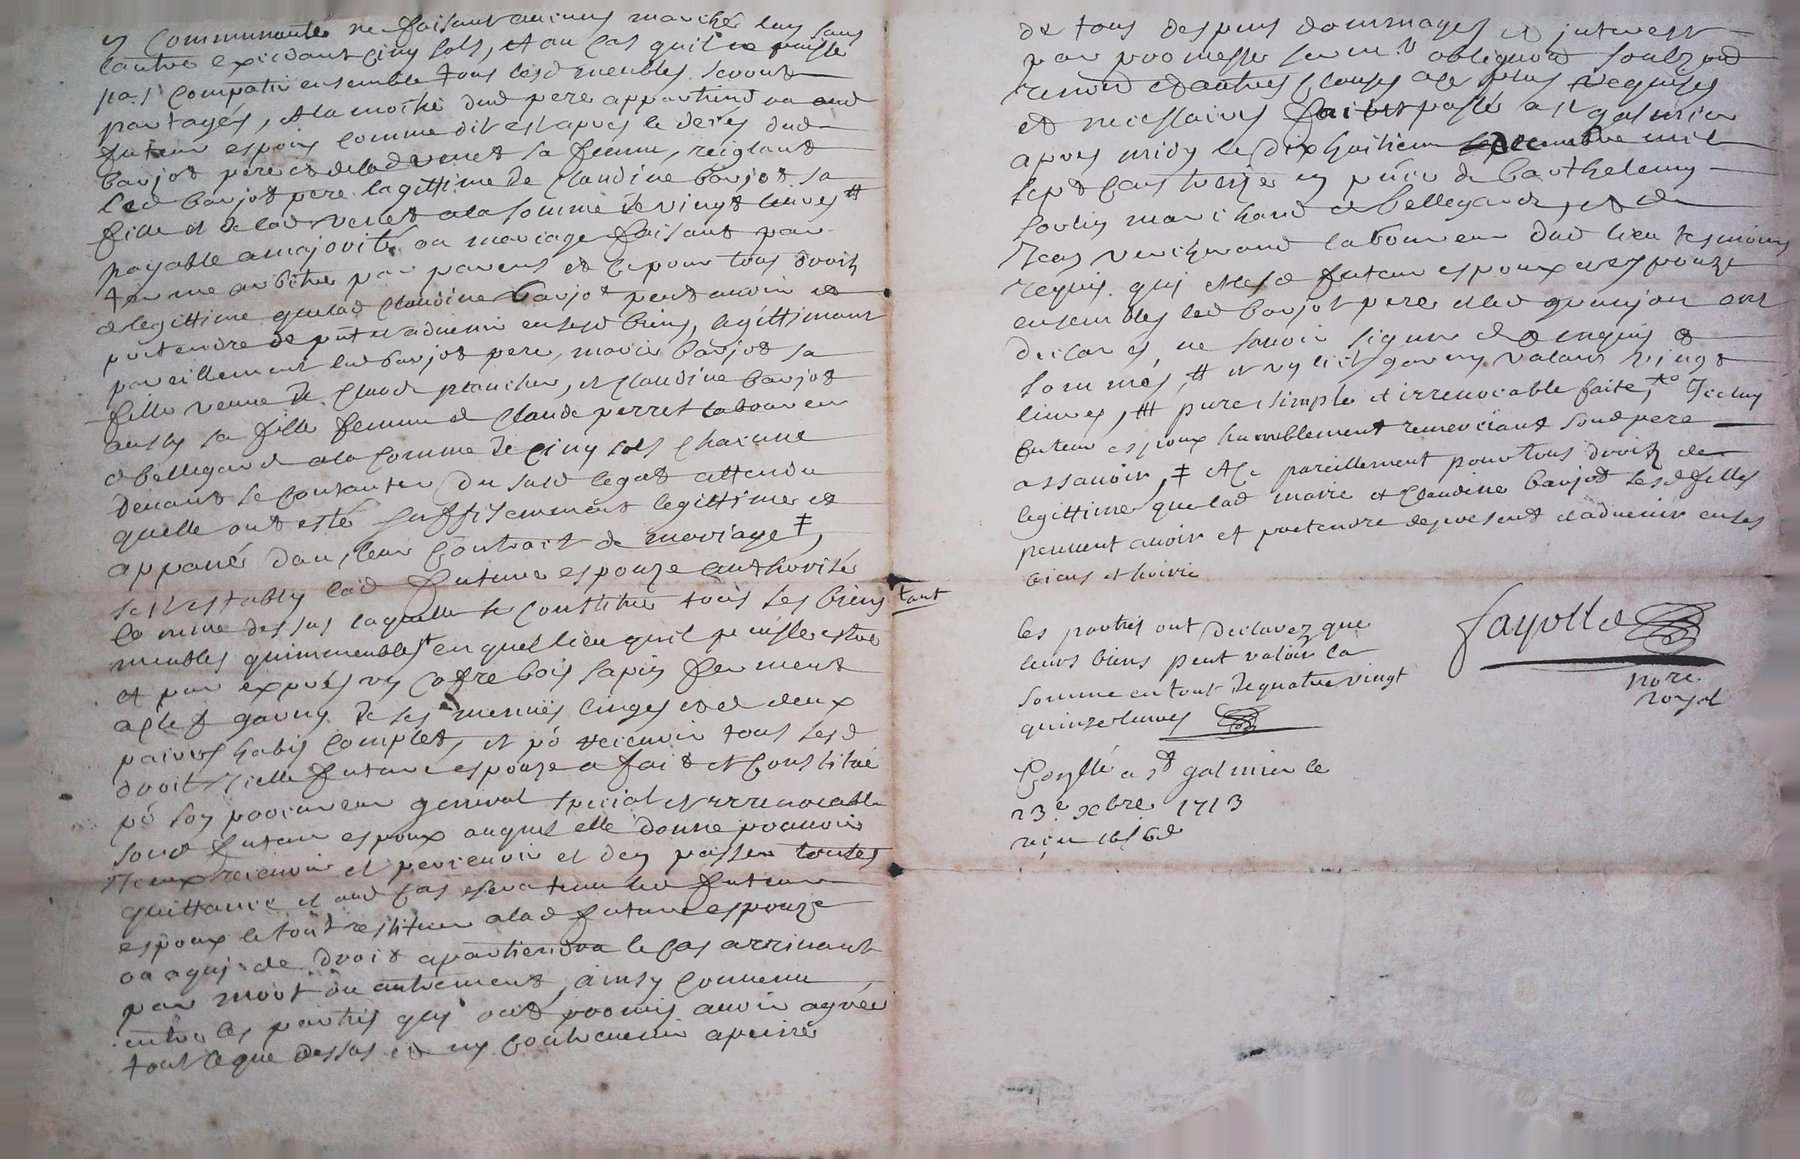 en Communauté ne faisant aucuns marché lun sans
lautre excedant cinq sols, et au cas quil ne puisse
pas compatir ensemble tous lesd meubles seront
partagés, et la moitié dud pere appartiend ra aud
futeur espoux comme dit est apres le deces dud
baujot pere et de lad vernet sa femme, reiglant
led baujot pere lagittime de Claudine baujot sa
fille et de lad vernet a la somme de vingt livres #
payable a majorité ou mariage faisant par
terme arbitré par parens et ce pour tous droits
de legittime que lad Claudine baujot peut avoir et
pretendre de put et advenir en sesd biens, legittimant
pareillement led baujot pere, marie baujot sa
fille veuve de Claude plancher, et Claudine baujot
aussy sa fille femme de Claude perret laboureur
de bellegarde a la somme de cinq sols chacune
devant se contanter du susd legat attendu
quelle ont esté suffisemment legittimer et
appanés dans leur contrait de mariage ‡,
sest establi lad future espouze authorisée
comme dessus laquelle se constitue tous ses biens tant
meubles quimmeubles en quel lieu quil puissse estre
et par exprés un coffre bois sapin fermant
a clef garny de ses menuës linges et de deux
paires habis complet, et po recevoir tous sesd
droit icelle future espouze a fait et constitué
po son procureur general special et irrevocable
sond futeur espoux auquel elle donne pouvoir
de iceux recevoir et percevoir et den passer toutes
quittance et aud cas sera tenu led futeur
espoux le tout restituer a lad future espouze
ou a qui de droit apartiendra le cas arrivant
par mort ou autrement, ainsy convenu
entre les partis qui ont promis avoir agreé
tout ce que dessus et ny contrevenir a peine
de tous despens dommages et interest
par promesse serment obligaons soubzmd
renond et autres clauses a ce plus requises
et necessaires fait et passé a st galmier
apres midy le dix huitieme decembre mil
sept cens treize en pnce de barthelemy
marchand de bellegarde, et de
Jean laboureur dud lieu tesmoins
requis qui et lesd futeur espoux et espouze
ensembles led baujot pere et led granjon ont
declarés, ne savoir signer de ce enquis et
sommés, # et un lict garny valant vingt
livres, ## pure simple et irrevocable faite, Iceluy
futeur espoux humblement remerciant sond pere
assavoir, ‡ et ce pareillement pour tous droits de
legittime que lad marie et Claudine baujot sesd filles
peuvent avoir et pretendre de present et advenir en ses
biens et hoirie
les parties ont declarez que
leurs biens peut valoir la
somme en tout de quatre vingt
quinze livres
fayolle
nore
royal
Conllé a st galmier le
23e xbre 1713